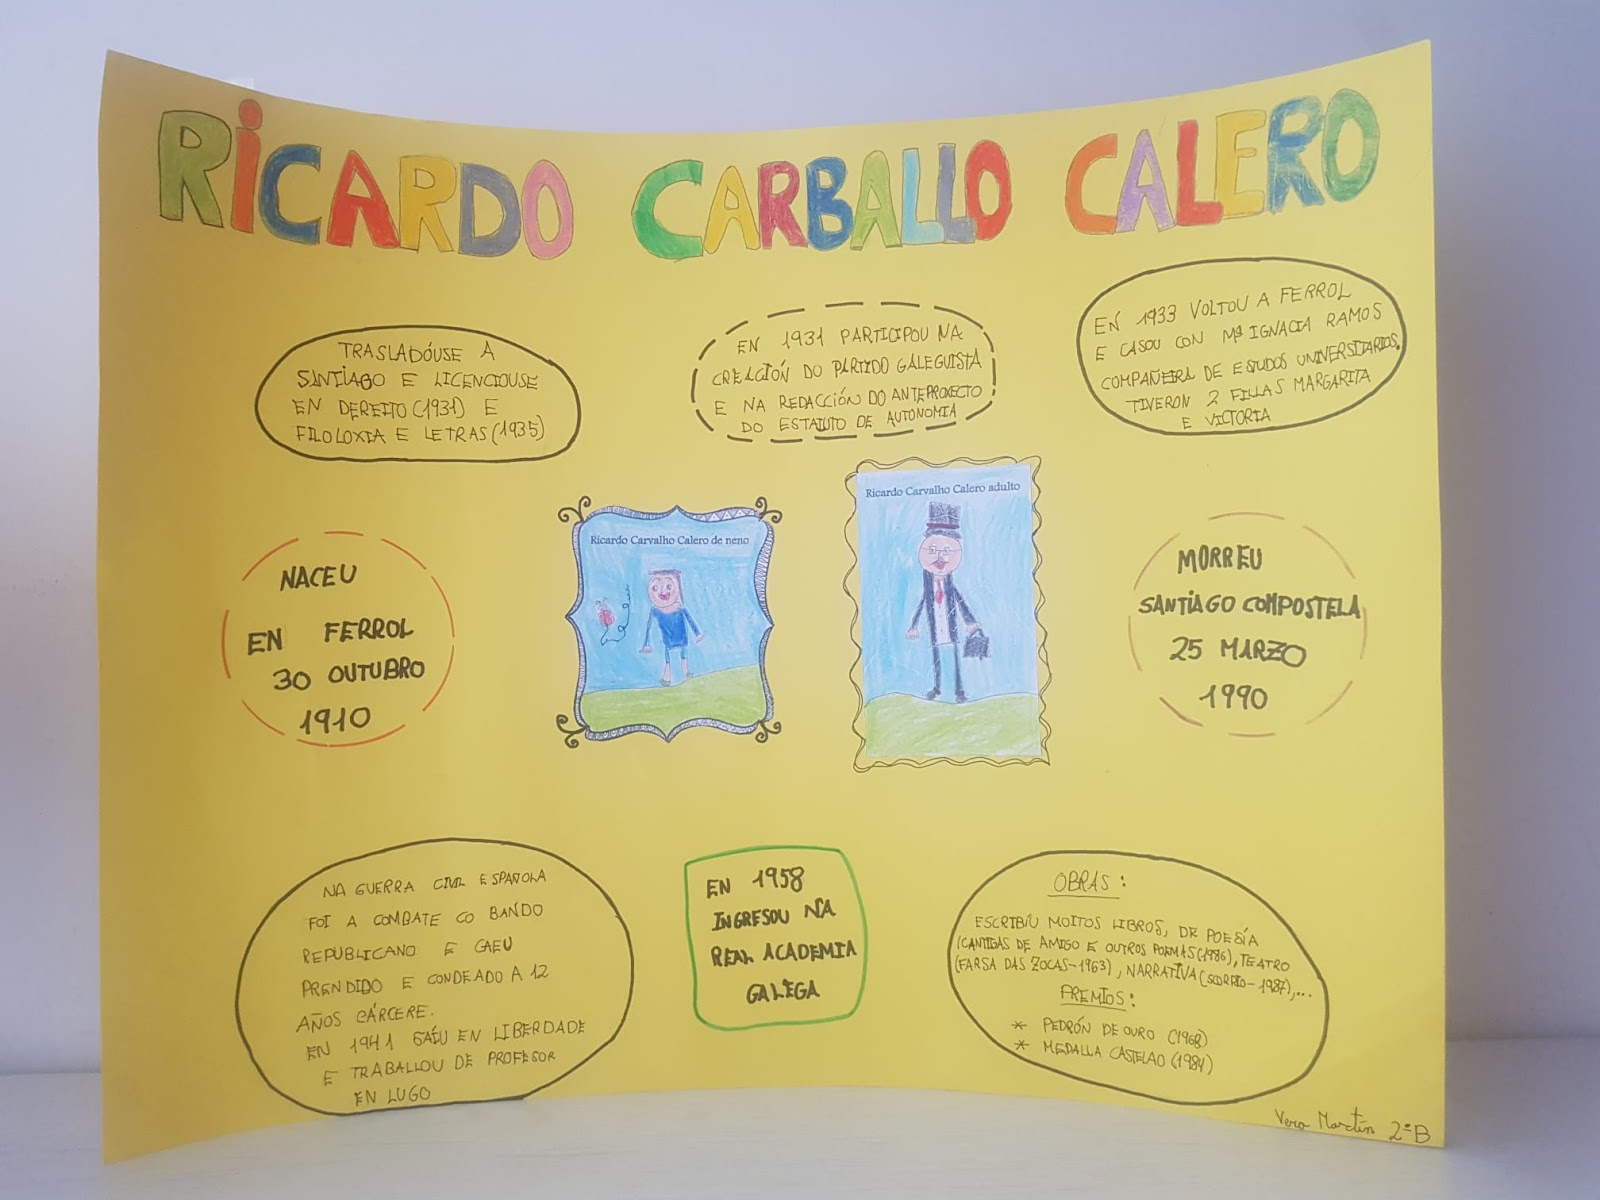 RICARDO CARBALLO CALERO
TRASLADÓUSE A
SANTIAGO E LICENCIOUSE
EN DEREITO (1931) E
FILOLOXIA E LETRAS (1935)
EN 1931 PARTICIPOU NA
CREACIÓN DO PARTIDO GALEGUISTA
E NA REDACCIÓN DO ANTEPROXECTO
DO ESTATUTO DE AUTONOMIA
EN 1933 VOLTOU A FERROL
E CASOU CON Mª IGNACIA RAMOS
COMPAÑEIRA DE ESTUDOS UNIVERSITARIOS.
TIVERON 2 FILLAS MARGARITA
E VICTORIA
NACEU
EN FERROL
30 OUTUBRO
1910
Ricardo Carvalho Calero de neno
Ricardo Carvalho Calero adulto
MORREU
SANTIAGO COMPOSTELA
25 MARZO
1990
NA GUERRA CIVIL ESPAÑOLA
FOI A COMBATE CO BANDO
REPUBLICANO E CAEU
PRENDIDO E CONDEADO A 12
AÑOS CÁRCERE.
EN 1941 SAÍU EN LIBERDADE
E TRABALLOU DE PROFESOR
EN LUGO
EN 1958
INGRESOU NA
REAL ACADEMIA
GALEGA
OBRAS:
ESCRIBÍU MOITOS LIBROS, DE POESÍA
(CANTIGAS DE AMIGO E OUTROS POEMAS (1986), TEATRO
(FARSA DAS ZOCAS-1963), NARRATIVA (SCORPIO-1987),...
PREMIOS:
* PEDRÓN DE OURO (1968)
* MEDALLA CASTELAO (1984)
Vera Martín 2ºB